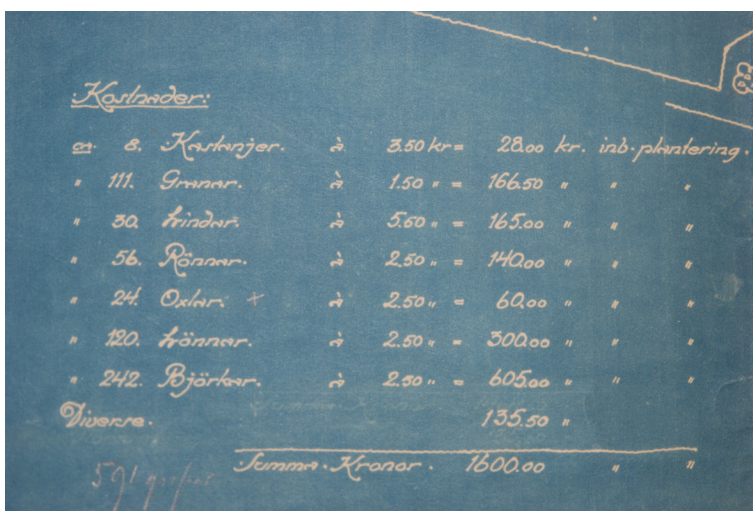 Kostnader:
ca. 8. Kastanjer. à 3.50 kr = 28.00 kr. inb. plantering.
" 111. Granar. à 1.50 " = 166.50 " " "
" 30. Lindar. à 5.50 " = 165.00 " " "
" 56. Rönnar. à 2.50 " = 140.00 " " "
" 24. Oxlar. x à 2.50 " = 60.00 " " "
" 120. Lönnar. à 2.50 " = 300.00 " " "
" 242. Björkar. à 2.50 " = 605.00 " " "
Diverse. 135.50 "
Summa. Kronor. 1600.00 " "
591 gropar